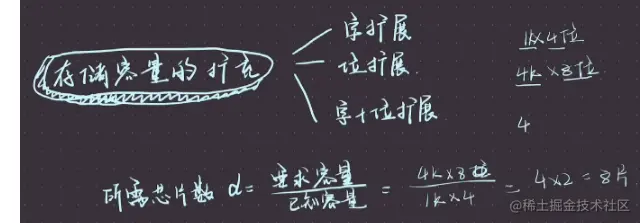 字扩展
1k×4位
存储容量的扩充
位扩展
4k×8位
字+位扩展
4
所需芯片数 d= 要求容量/已知容量 = 4k×8位/1k×4 = 4×2=8片
@稀土掘金技术社区